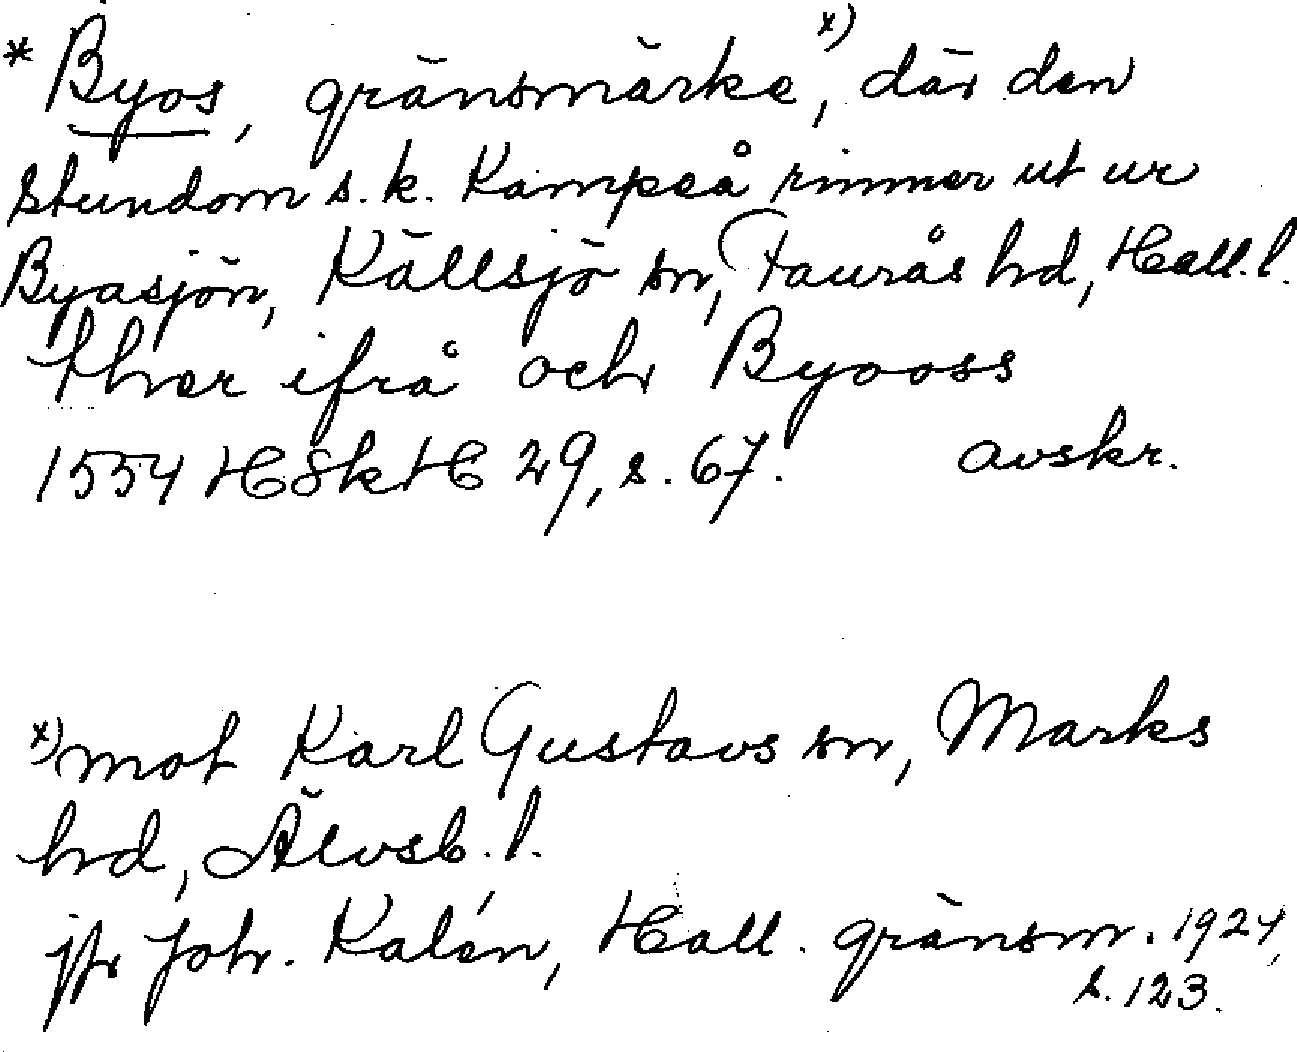 * Byos, gränsmärke x), där den
stundom s.k. Kampeå rinner ut ur
Byasjön, Källsjö sn, Faurås hd, Hall. l.
ther ifrå och Byooss
1554 HSkH 29, s. 67. avskr.
x) mot Karl Gustavs sn, Marks
hd, Älvsb. l.
jfr Joh. Kalén, Hall. gränsm. 1924,
s. 123.